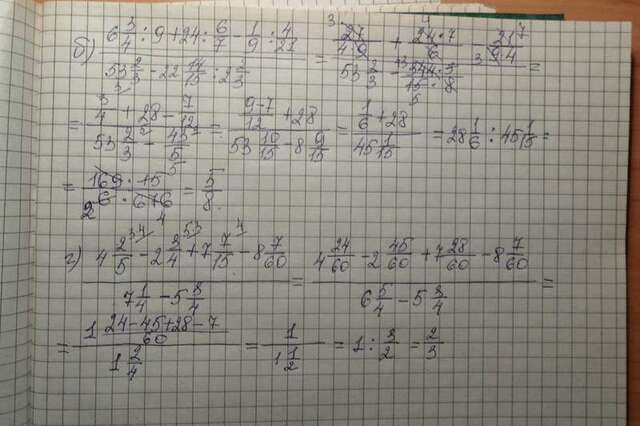 б) (6 3/4 : 9 + 24 : 6/7 - 1/9 : 4/21) / (53 2/3 - 22 14/15 : 2 2/3) = (27/(4·9) + (24·7)/6 - 21/(9·4)) / (53 2/3 - (344·3)/(15·8)) =
= (3/4 + 28 - 7/12) / (53 2/3 - 43/5) = ((9-7)/12 + 28) / (53 10/15 - 8 9/15) = (1/6 + 28) / (45 1/15) = 28 1/6 : 45 1/15 =
= (169 · 15) / (6 · 676) = 5/8.
г) (4 2/5 - 2 3/4 + 7 7/15 - 8 7/60) / (7 1/4 - 5 3/4) = (4 24/60 - 2 45/60 + 7 28/60 - 8 7/60) / (6 5/4 - 5 3/4) =
= (1 (24-45+28-7)/60) / (1 2/4) = 1 / (1 1/2) = 1 : 3/2 = 2/3